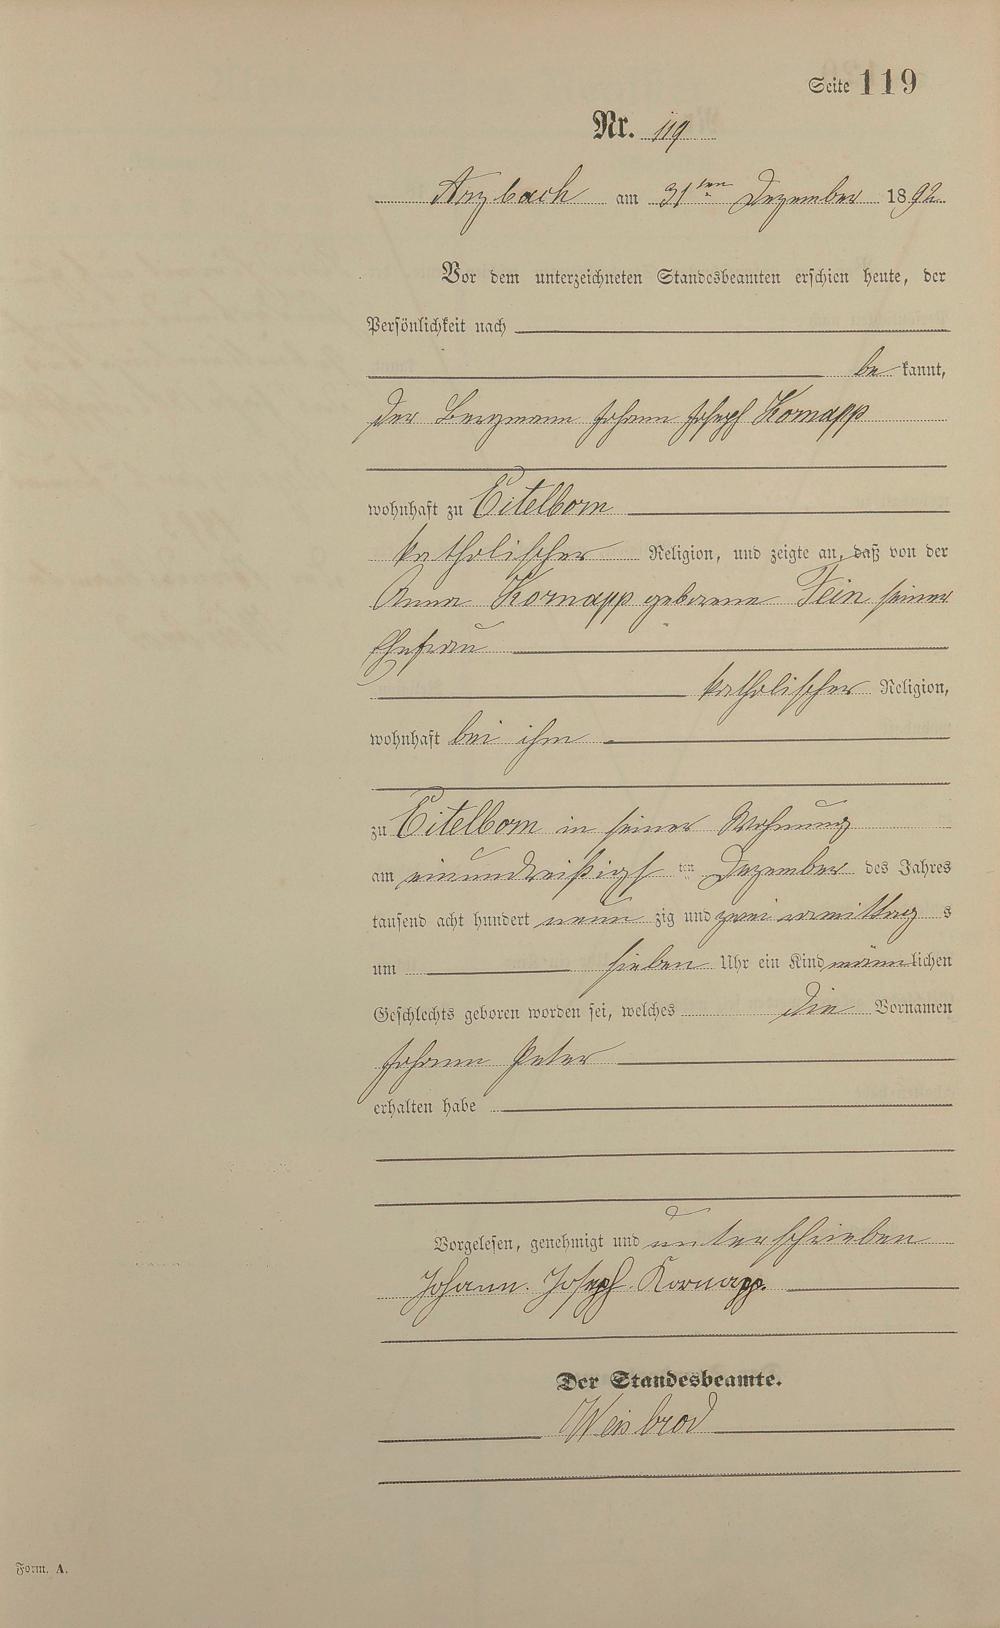 Seite 119
Nr. 119
Arzbach am 31ten Dezember 1892
Vor dem unterzeichneten Standesbeamten erschien heute, der
Persönlichkeit nach
bekannt,
der Bergmann Johann Joseph Kornapp
wohnhaft zu Eitelborn
katholischer Religion, und zeigte an, daß von der
Anna Kornapp geborene Fein seiner
Ehefrau
katholischer Religion,
wohnhaft bei ihm
zu Eitelborn in seiner Wohnung
am einunddreißigsten Dezember des Jahres
tausend acht hundert neunzig und zwei vormittags
um sieben Uhr ein Kind männlichen
Geschlechts geboren worden sei, welches die Vornamen
Johann Peter
erhalten habe
Vorgelesen, genehmigt und unterschrieben
Johann. Joseph Kornapp.
Der Standesbeamte.
Weisbrod
Form. A.